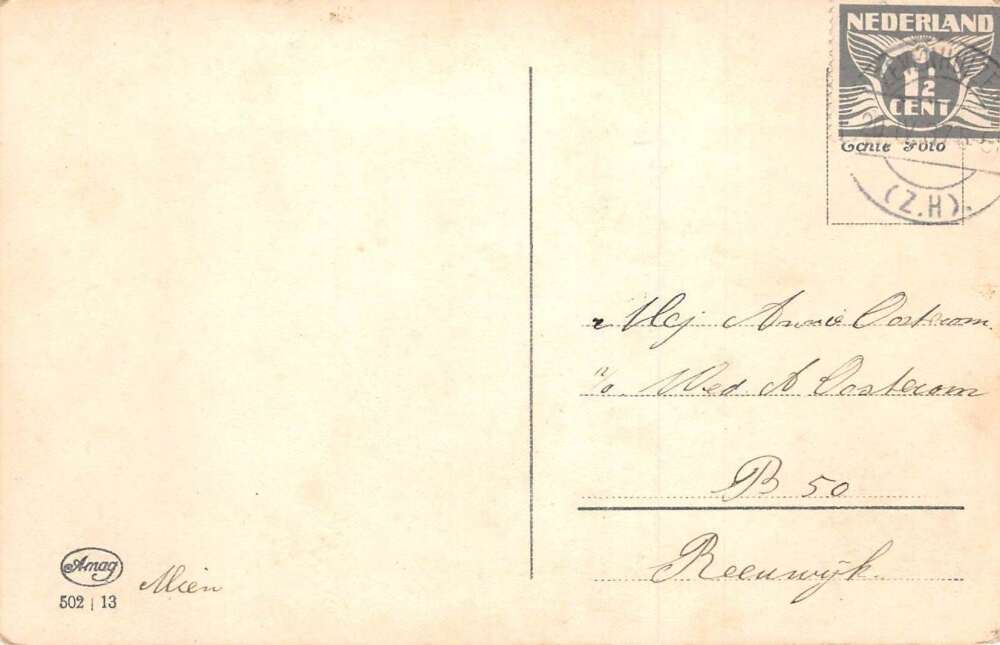 NEDERLAND
1½
CENT
Echte Foto
(Z.H).
Mej Annie Oostrom
p/a. Wed. A Oostrom
B 50
Reeuwijk.
Amag
502 | 13
Mien